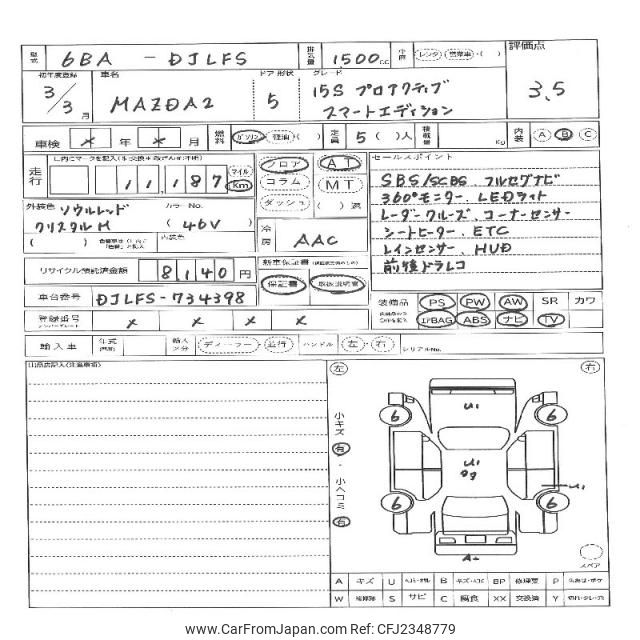 型式 6BA - DJLFS 排気量 1500 cc
レンタ
評価点
初年度登録 3/3 月
車名 MAZDA2
ドア 形状 5
グレード 15S プロアクティブ
スマートエディション
3.5
車検 × 年 × 月
燃料 ガソリン 軽油 ( )
定員 5 ( ) 人
積載量 Kg
内装 A B C
走行 11,187 マイル Km
フロア コラム ダッシュ
AT MT ( ) 速
セールスポイント
SBS/SCBS フルセグナビ
360°モニター LEDライト
レーダークルーズ コーナーセンサー
シートヒーター ETC
レインセンサー HUD
前後ドラレコ
外装色 ソウルレッド
クリスタルM
カラーNo. ( 46V )
内装色
冷房 AAC
リサイクル預託済金額 8140 円
新車保証書
保証書 取扱説明書
車台番号 DJLFS-734398
装備品 PS PW AW SR カワ
エアBAG ABS ナビ TV
登録番号 × × × ×
輸入車 年式 ディーラー・並行 ハンドル 左・右 シリアルNo.
左 右
小キズ 有・小ヘコミ 有
6 U1 6
U1
U1
6 6
A1
スペア
A キズ U B BP 修理要 P
W S サビ C 腐食 XX 交換済 Y
www.CarFromJapan.com - ID CFJ2348779